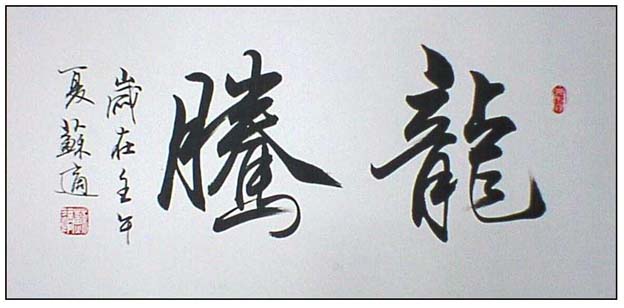 龍騰
歲在壬午
夏蘇適